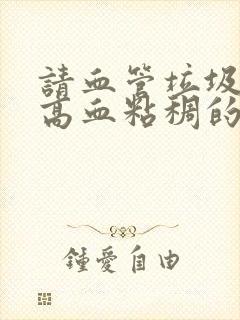 請血管垃圾
高血粘稠的
鍾愛自由